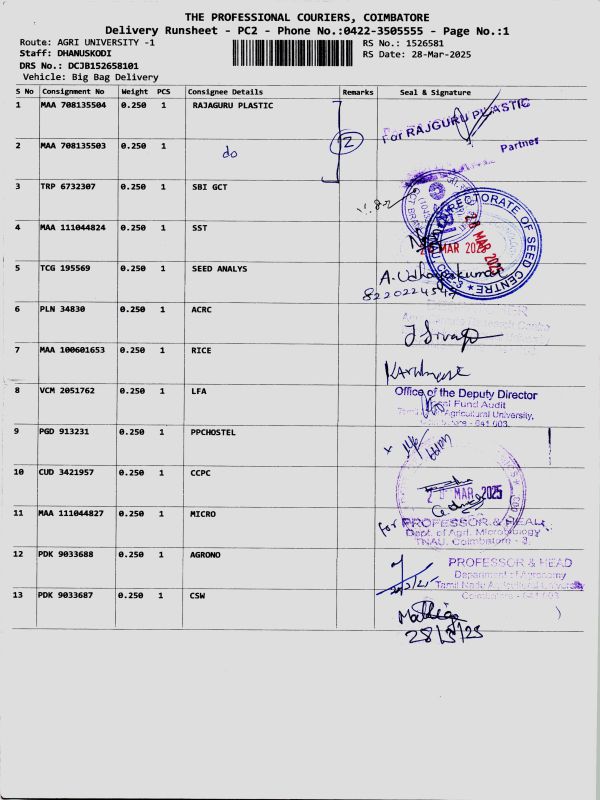 THE PROFESSIONAL COURIERS, COIMBATORE
Delivery Runsheet - PC2 - Phone No.:0422-3505555 - Page No.:1
Route: AGRI UNIVERSITY -1
RS No.: 1526581
Staff: DHANUSKODI
RS Date: 28-Mar-2025
DRS No.: DCJB152658101
Vehicle: Big Bag Delivery
S No Consignment No Weight PCS Consignee Details Remarks Seal & Signature
1 MAA 708135504 0.250 1 RAJAGURU PLASTIC
For RAJGURU PLASTIC
Partner
2 MAA 708135503 0.250 1 do 2
3 TRP 6732307 0.250 1 SBI GCT
4 MAA 111044824 0.250 1 SST
DIRECTORATE OF SEED CENTRE
28 MAR 2025
5 TCG 195569 0.250 1 SEED ANALYS
A. Udhayakumar
8220224547
6 PLN 34830 0.250 1 ACRC
7 MAA 100601653 0.250 1 RICE
8 VCM 2051762 0.250 1 LFA
Office of the Deputy Director
Local Fund Audit
Tamil Nadu Agricultural University,
Coimbatore - 641 003.
9 PGD 913231 0.250 1 PPCHOSTEL
10 CUD 3421957 0.250 1 CCPC
MAR 2025
11 MAA 111044827 0.250 1 MICRO
for PROFESSOR & HEAD
Dept. of Agrl. Microbiology
TNAU, Coimbatore - 3.
12 PDK 9033688 0.250 1 AGRONO
PROFESSOR & HEAD
Department of Agronomy
Tamil Nadu Agricultural University
Coimbatore - 641 003
13 PDK 9033687 0.250 1 CSW
28/3/25